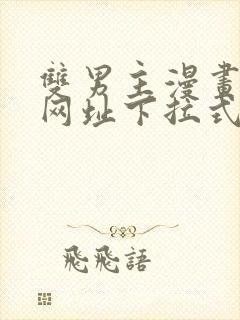 雙男主漫畫
网址下拉式
飛飛語